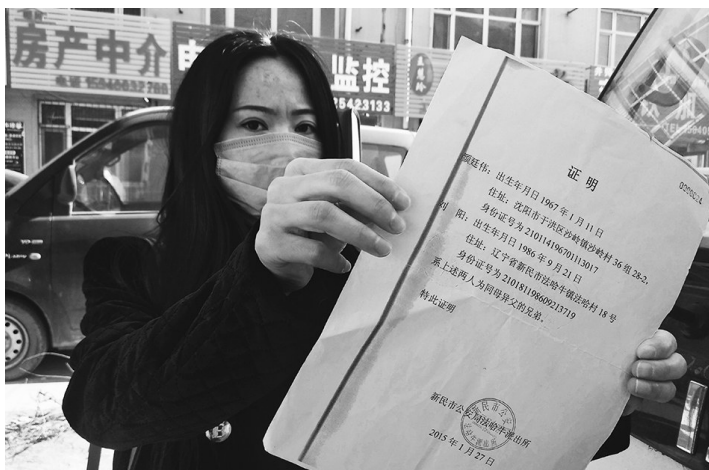 房产中介
监控
25423133
证明
0000024
颜廷伟：出生年月日 1967 年 1 月 11 日
住址：沈阳市于洪区沙岭镇沙岭村 36 组 28-2，
身份证号为 210114196701113017
刘 阳：出生年月日 1986 年 9 月 21 日
住址：辽宁省新民市法哈牛镇法哈村 18 号
身份证号为 210181198609213719
系上述两人为同母异父的兄弟。
特此证明
新民市公安局法哈牛派出所
2015 年 1 月 27 日